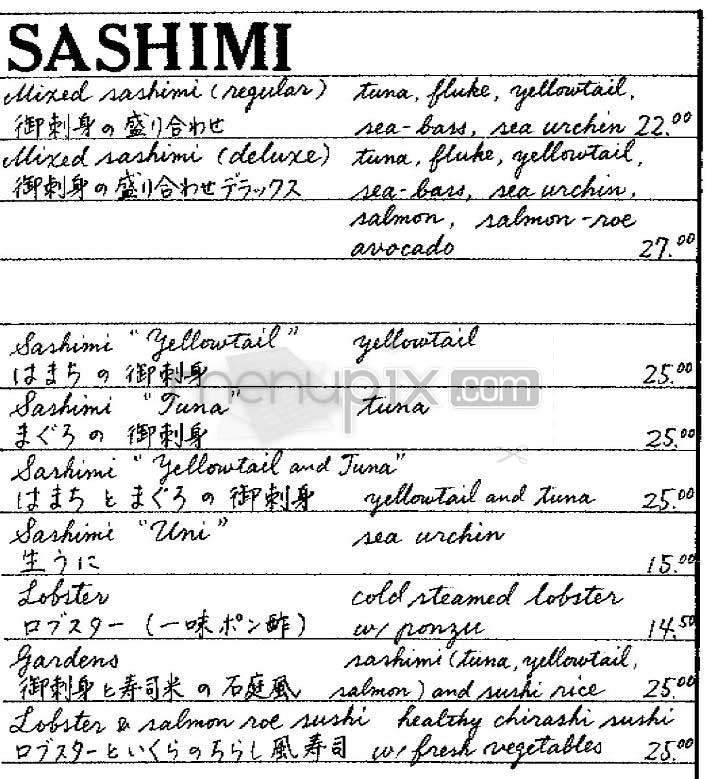 SASHIMI
Mixed sashimi (regular) tuna, fluke, yellowtail,
御刺身の盛り合わせ sea-bass, sea urchin 22.00
Mixed sashimi (deluxe) tuna, fluke, yellowtail,
御刺身の盛り合わせデラックス sea-bass, sea urchin,
salmon, salmon-roe
avocado 27.00
Sashimi "Yellowtail" yellowtail
はまちの御刺身 25.00
menupix.com
Sashimi "Tuna" tuna
まぐろの御刺身 25.00
Sashimi "Yellowtail and Tuna"
はまちとまぐろの御刺身 yellowtail and tuna 25.00
Sashimi "Uni" sea urchin
生うに 15.00
Lobster cold steamed lobster
ロブスター (一味ポン酢) w/ ponzu 14.50
Gardens sashimi (tuna, yellowtail,
御刺身と寿司米の石庭風 salmon) and sushi rice 25.00
Lobster & salmon roe sushi healthy chirashi sushi
ロブスターといくらのちらし風寿司 w/ fresh vegetables 25.00